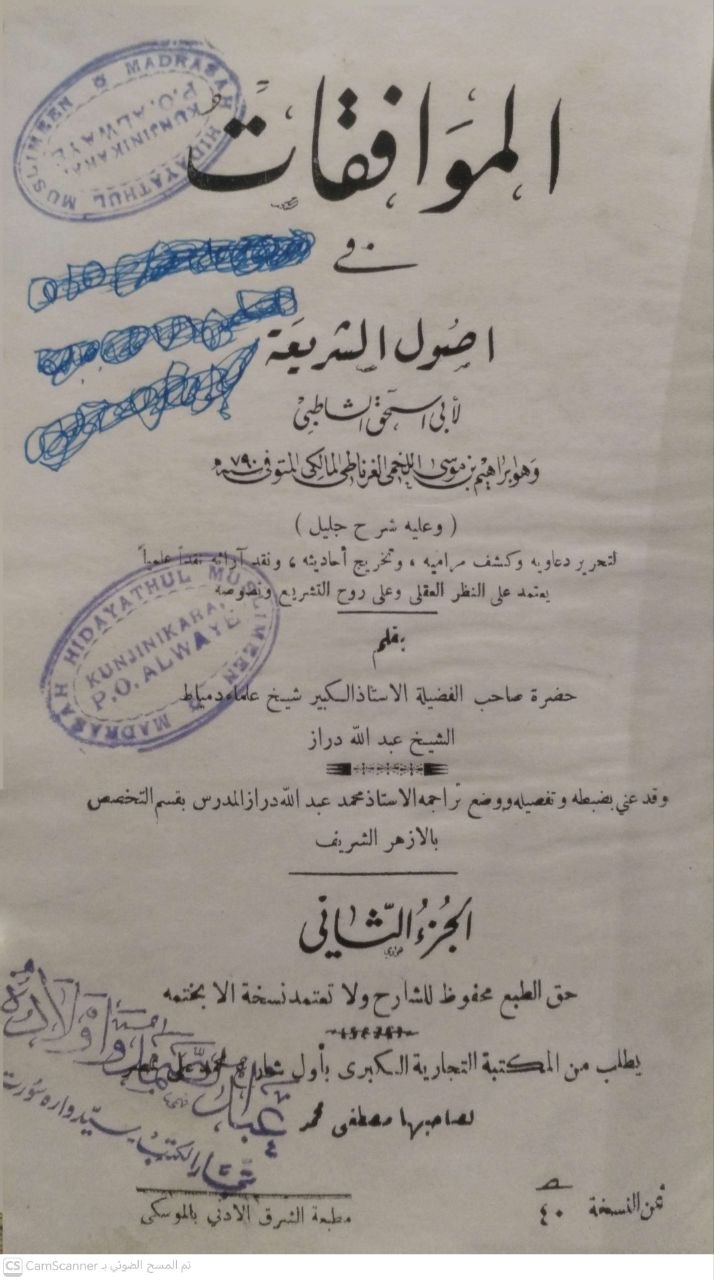 MADRASAH HIDAYATHUL MUSLIMEEN
KUNJINIKARA,
P.O. ALWAYE
الموافقات
في
اصول الشريعة
لأبى اسحق الشاطبى
وهو ابراهيم بن موسى اللخمى الغرناطى المالكى المتوفى سنة ٧٩٠
( وعليه شرح جليل )
لتحرير دعاويه وكشف مراميه ، وتخريج أحاديثه ، ونقد آرائه نقداً علمياً
يعتمد على النظر العقلى وعلى روح التشريع ونصوصه
بقلم
MADRASAH HIDAYATHUL MUSLIMEEN
KUNJINIKARA,
P.O. ALWAYE
حضرة صاحب الفضيلة الاستاذ الكبير شيخ علماء دمياط
الشيخ عبد الله دراز
وقد عني بضبطه وتفصيله ووضع تراجمه الاستاذ محمد عبد الله دراز المدرس بقسم التخصص
بالازهر الشريف
الجزء الثاني
حق الطبع محفوظ للشارح ولا تعتمد نسخة الا بختمه
يطلب من المكتبة التجارية الكبرى بأول شارع محمد على بمصر
لصاحبها مصطفى محمد
واولاده
تجار الكتب
سورت
ثمن النسخة ٤٠
مطبعة الشرق الادني بالموسكى
تم المسح الضوئي بـ CamScanner
CS